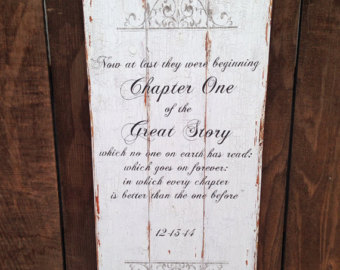 Now at last they were beginning
Chapter One
of the
Great Story
which no one on earth has read:
which goes on forever:
in which every chapter
is better than the one before
12-13-14